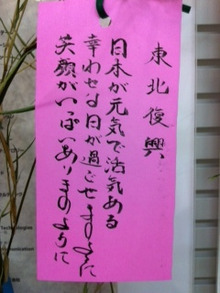 東北復興
日本が元気で活気ある
幸わせな日が過ごせますように
笑顔がいっぱいありますように